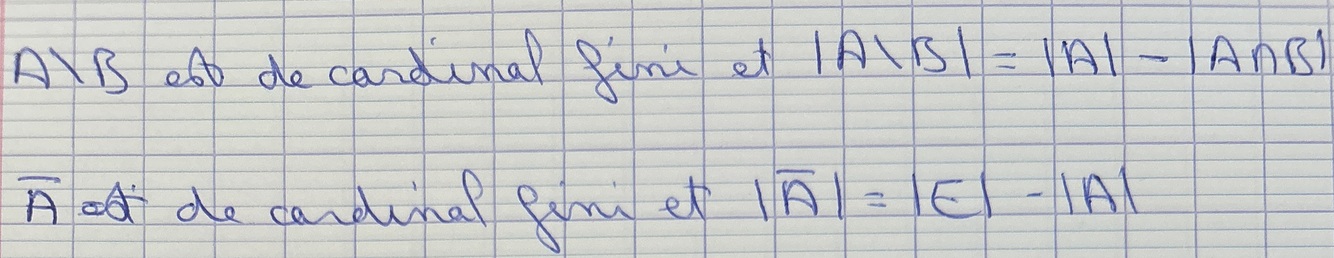 A\B est de cardinal fini et |A\B| = |A| - |A∩B|
A̅ est de cardinal fini et |A̅| = |E| - |A|